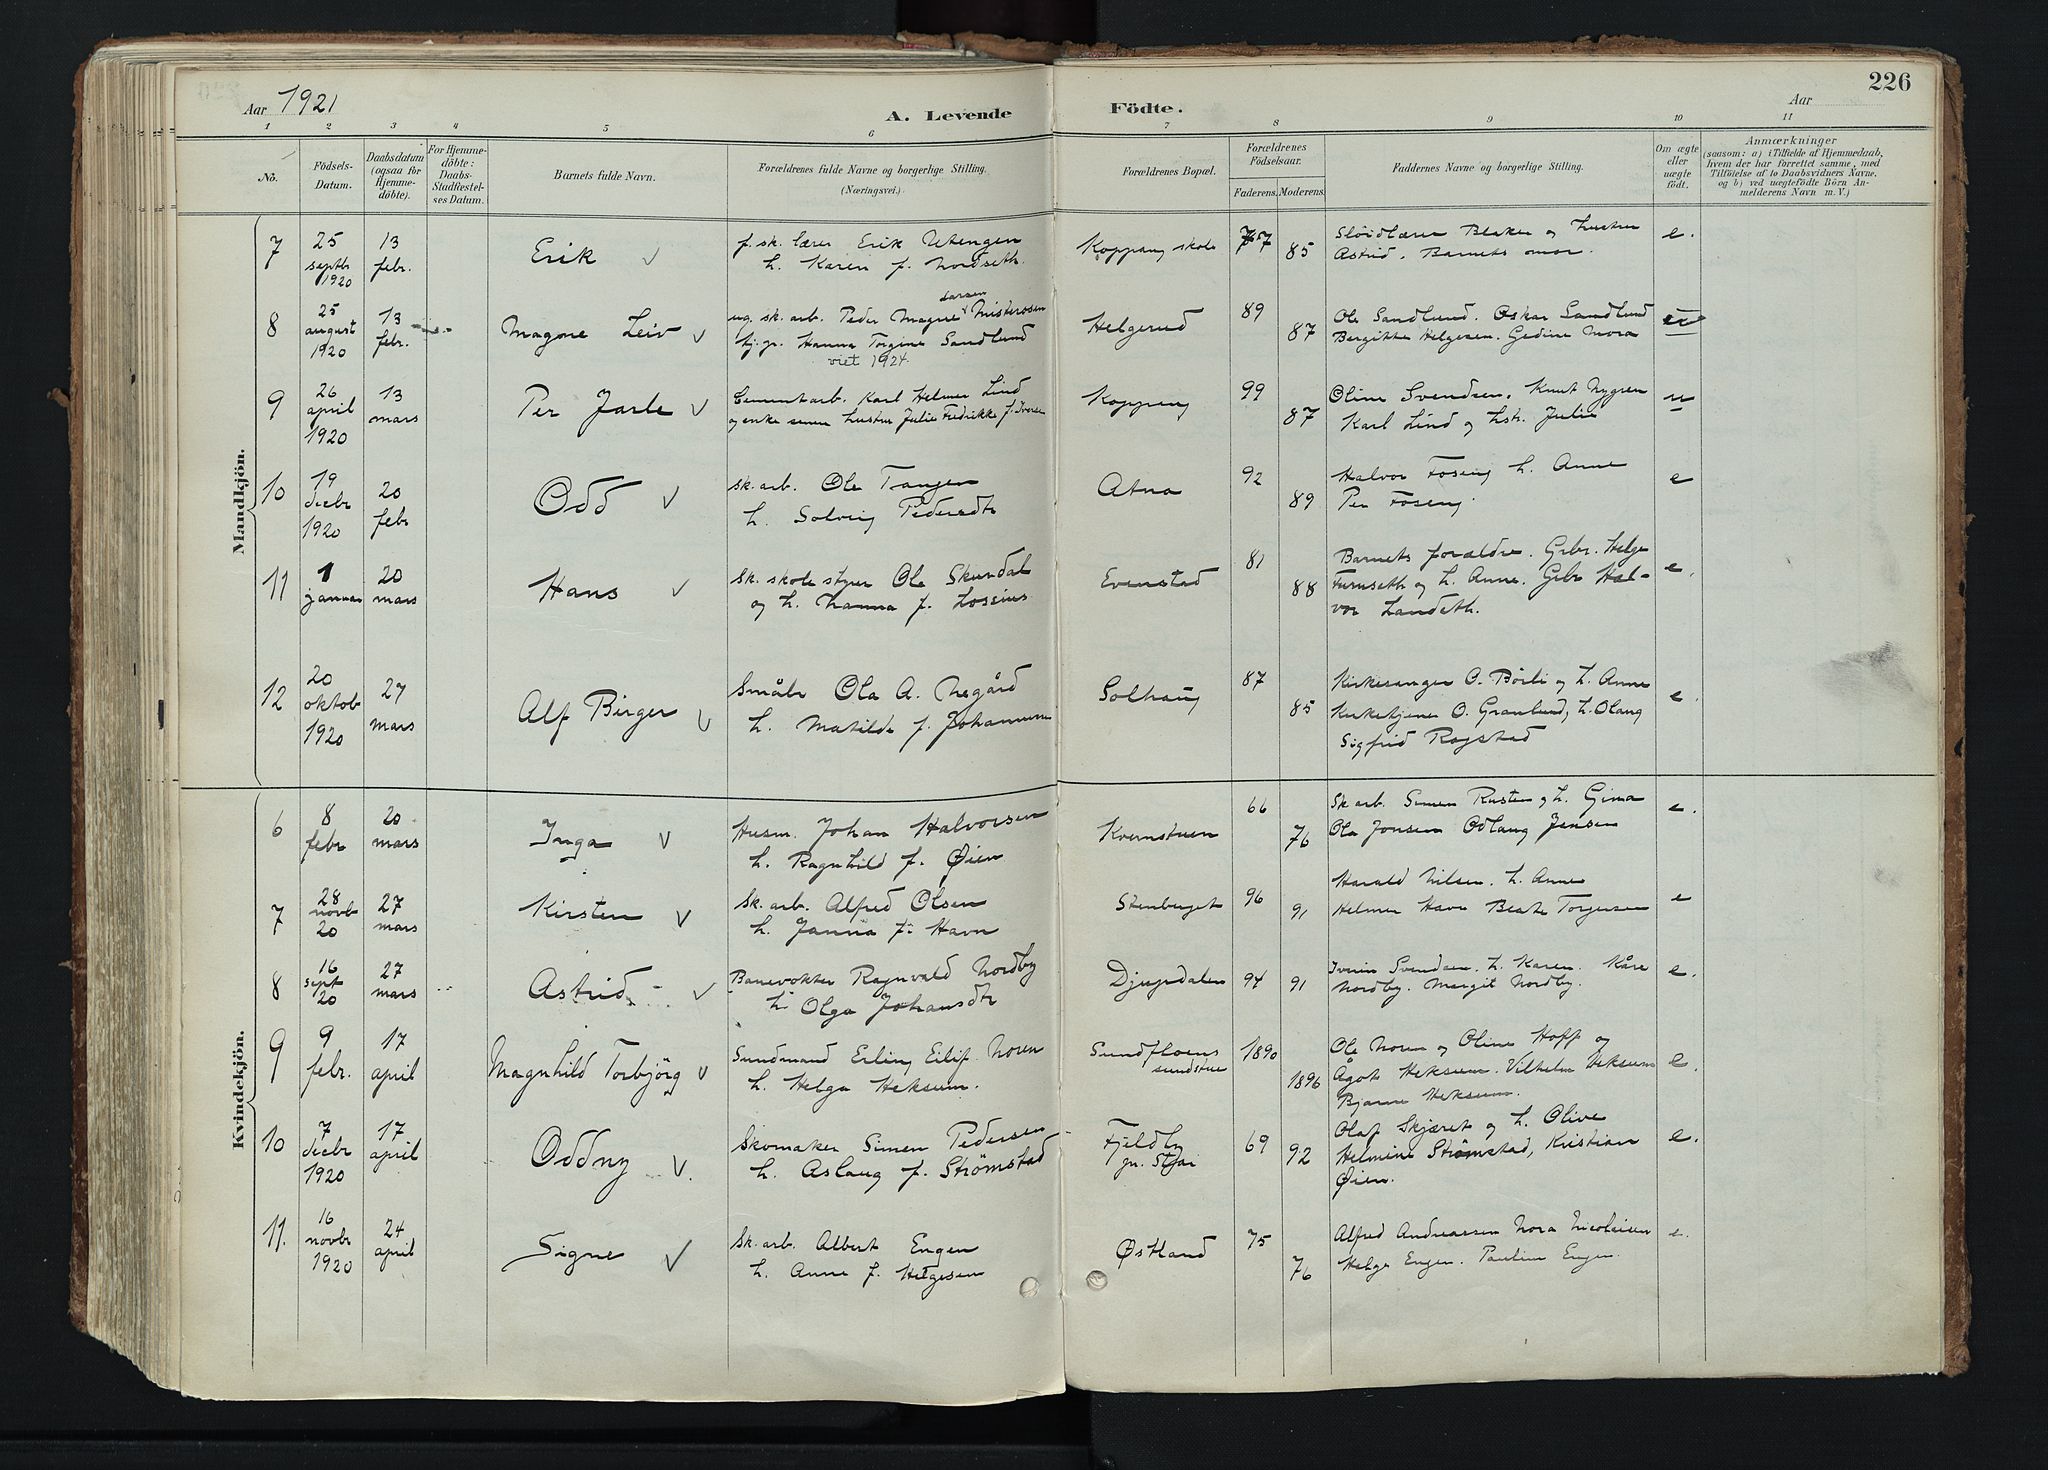 226
Aar 1921
A. Levende Födte.
Aar
1 2 3 4 5 6 7 8 9 10 11
No.
Födsels-Datum.
Daabsdatum (ogsaa for Hjemmedöbte).
For Hjemmedöbte: Daabs-Stadfestelses Datum.
Barnets fulde Navn.
Forældrenes fulde Navne og borgerlige Stilling. (Næringsvei.)
Forældrenes Bopæl.
Forældrenes Födselsaar.
Faderens. Moderens.
Faddernes Navne og borgerlige Stilling.
Om ægte eller uægte födt.
Anmærkninger
(saasom: a) i Tilfælde af Hjemmedaab, hvem der har forrettet samme, med Tilföielse af to Daabsvidners Navne, og b) ved uægtefödte Börn Anmelderens Navn m.V.)
Mandkjön.
7
25 septbr 1920
13 febr.
Erik
f. sk. lærer Erik Utengen
h. Karen f. Nordseth
Koppang skole
85
Sløidlærer Bleken og hustru
Astrid. Barnets mor.
e.
8
25 august 1920
13 febr.
Magne Leiv
ug. sk. arb. Peder Magne Misterosen
hj. pr. Hanna Torgine Sandlund
viet 1924.
Helgerud
89
87
Ole Sandlund. Oskar Sandlund
Bergitte Helgesen. Gedine Mora
9
26 april 1920
13 mars
Per Jarle
Cementarb. Karl Helmer Lind
og enke senere hustru Julie Fredrikke f. Iversen
Koppang
99
87
Oline Svendsen. Knut Nygren
Karl Lind og hstr. Julie
u
10
19 decbr 1920
20 febr
Odd
sk. arb. Ole Tangen
h. Solveig Pedersdtr
Atna
92
89
Halvor Foseng h. Anne
Per Foseng.
e
11
1 januar
20 mars
Hans
Sk. skole styrer Ole Skurdal
og h. Hanna f. Lossius
Evenstad
81
88
Barnets forældre. Grbr. Helge
Furuseth og h. Anne. Grbr Hal-
vor Landeth.
e.
12
20 oktob 1920
27 mars
Alf Birger
Småbr Ola A. Negård
h. Matilde f. Johannesen
Solhaug
87
85
Kirkesanger O. Börli og h. Anne
Kirketjener O. Granlund, h. Olaug
Sigfrid Rogstad
e
Kvindekjön.
6
8 febr
20 mars
Inga
Husm. Johan Halvorsen
h. Ragnhild f. Øien
Kvernstuen
66
76
Sk arb. Simen Rusten og h. Gina
Ola Jonsen Odlaug Jensen
e.
7
28 novb 20
27 mars
Kirsten
Sk. arb. Alfred Olsen
h. Janna f. Havn
Stenberget
96
91
Harald Nilsen. h. Anne
Helmer Havn Beate Torgersen
e
8
16 sept 20
27 mars
Astrid
Banevokter Ragnvald Nordby
h Olga Johansdtr
Djupdalen
94
91
Iverin Svendsen. h. Karen. Kåre
Nordby. Margit Nordby.
e.
9
9 febr.
17 april
Magnhild Torbjörg
Sundmand Erling Eilif Noren
h. Helga Heksum.
Sundfloens
sundstue
1890
1896
Ole Noren og Oline Hoff og
Ågot Heksum. Vilhelm Heksum
Bjarne Heksum.
e.
10
7 decbr 1920
17 april
Oddny
Skomaker Simen Pedersen
h. Aslaug f. Strömstad
Fjeldly
pr. Stai
69
92
Olaf Skjæret og h. Olive
Helmine Strömstad, Kristian
Øien.
e.
11.
16 novbr 1920
24 april
Signe
Sk. arb. Albert Engen
h. Anne f. Helgesen
Østland
75
76
Alfred Andreassen Nora Nicolaisen
Helge Engen. Pauline Engen.
e.